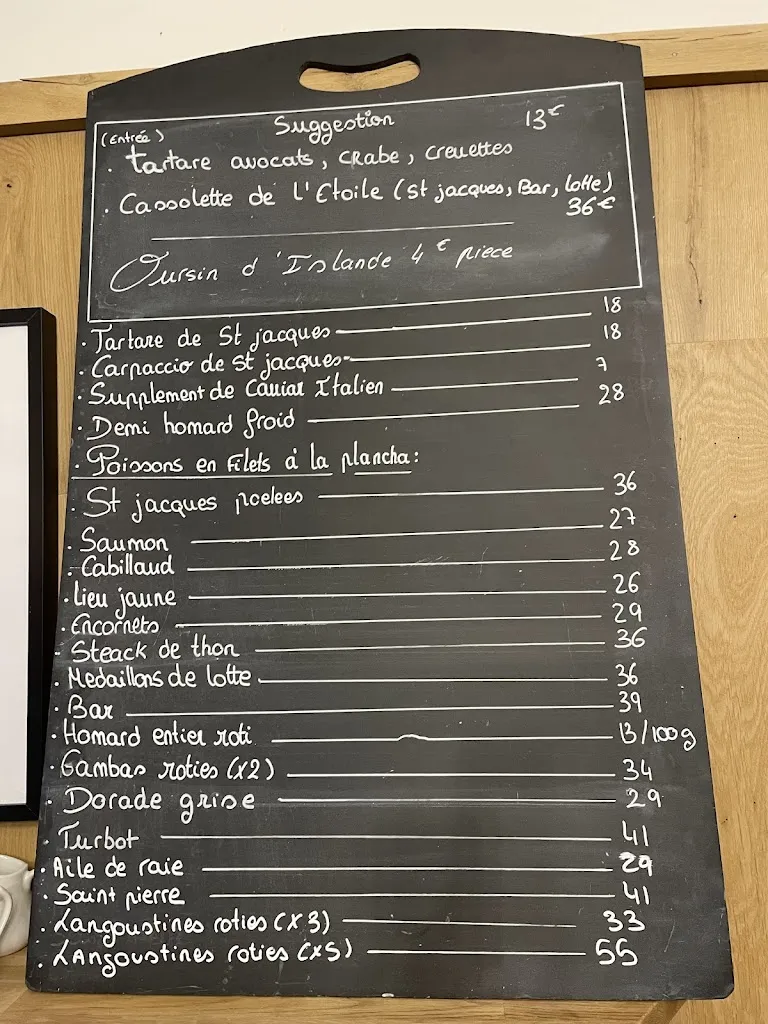 Suggestion
(Entrée) 13€
. Tartare avocats, crabe, creuettes
. Cassolette de l'Etoile (St jacques, Bar, lotte)
36€
Oursin d'Islande 4€ piece
. Tartare de St jacques 18
. Carpaccio de St jacques 18
. Supplement de Caviar Italien 7
. Demi homard froid 28
. Poissons en Filets à la plancha:
. St jacques poelees 36
. Saumon 27
. Cabillaud 28
. Lieu jaune 26
. Encornets 29
. Steack de thon 36
. Medaillons de lotte 36
. Bar 39
. Homard entier roti 13/100g
. Gambas roties (x2) 34
. Dorade grise 29
. Turbot 41
. Aile de raie 29
. Saint pierre 41
. Langoustines roties (x3) 33
. Langoustines roties (x5) 55